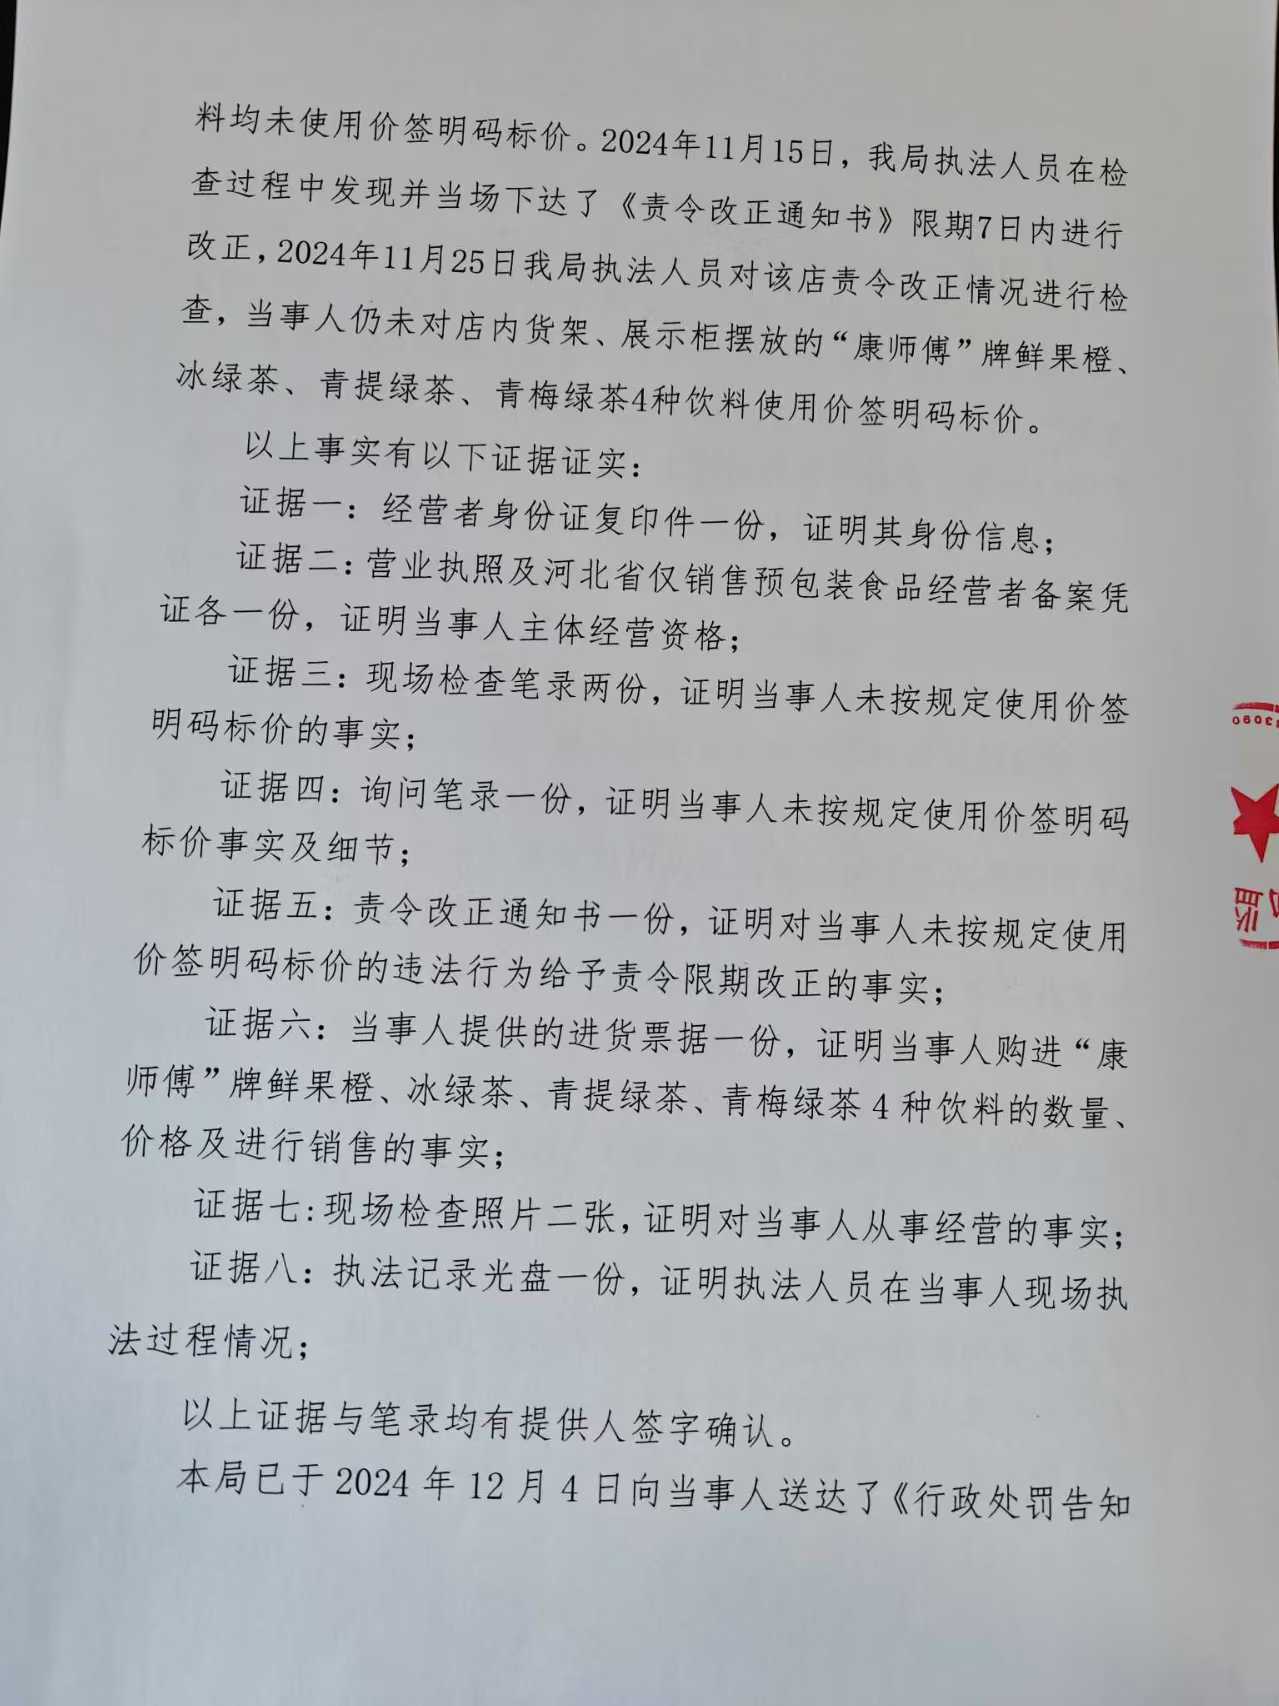 料均未使用价签明码标价。2024年11月15日，我局执法人员在检
查过程中发现并当场下达了《责令改正通知书》限期7日内进行
改正，2024年11月25日我局执法人员对该店责令改正情况进行检
查，当事人仍未对店内货架、展示柜摆放的“康师傅”牌鲜果橙、
冰绿茶、青提绿茶、青梅绿茶4种饮料使用价签明码标价。
以上事实有以下证据证实：
证据一：经营者身份证复印件一份，证明其身份信息；
证据二：营业执照及河北省仅销售预包装食品经营者备案凭
证各一份，证明当事人主体经营资格；
证据三：现场检查笔录两份，证明当事人未按规定使用价签
明码标价的事实；
证据四：询问笔录一份，证明当事人未按规定使用价签明码
标价事实及细节；
证据五：责令改正通知书一份，证明对当事人未按规定使用
价签明码标价的违法行为给予责令限期改正的事实；
证据六：当事人提供的进货票据一份，证明当事人购进“康
师傅”牌鲜果橙、冰绿茶、青提绿茶、青梅绿茶 4 种饮料的数量、
价格及进行销售的事实；
证据七：现场检查照片二张，证明对当事人从事经营的事实；
证据八：执法记录光盘一份，证明执法人员在当事人现场执
法过程情况；
以上证据与笔录均有提供人签字确认。
本局已于 2024 年 12 月 4 日向当事人送达了《行政处罚告知